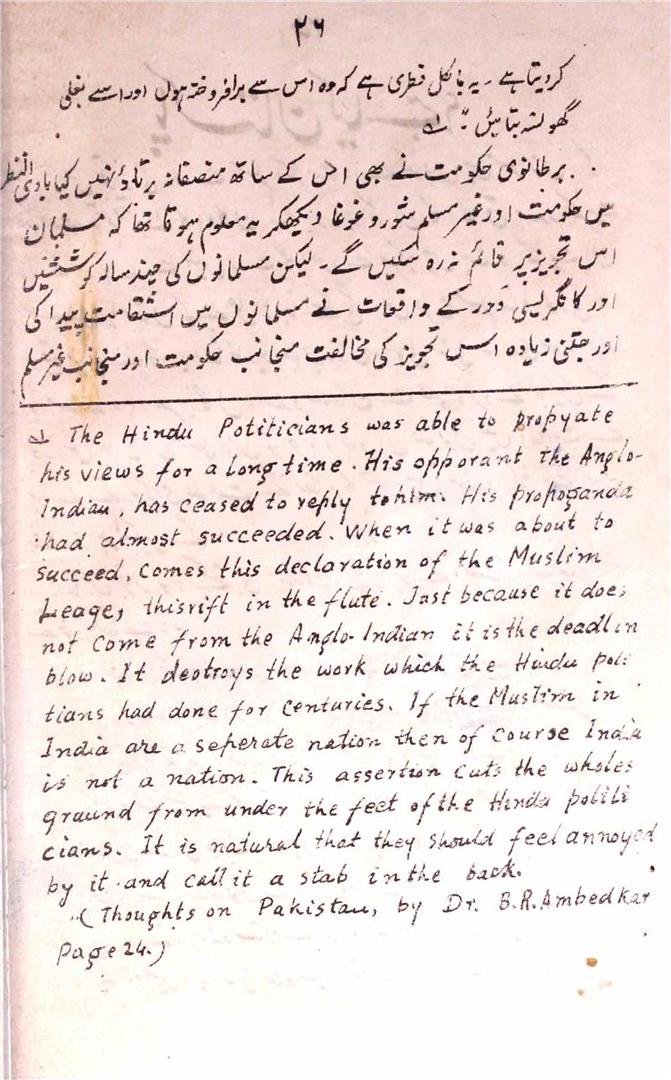 ۲۶
کر دیتا ہے ۔ یہ بالکل فطری ہے کہ وہ اس سے برافروختہ ہوں اور اسے بغلی
گھونسہ بتائیں " ۱
برطانوی حکومت نے بھی اس کے ساتھ منصفانہ برتاؤ نہیں کیا بادی النظر
میں حکومت اور غیر مسلم شور و غوغا دیکھکر یہ معلوم ہوتا تھا کہ مسلمان
اس تجویز پر قائم نہ رہ سکیں گے ۔ لیکن مسلمانوں کی چند سالہ کوششیں
اور کانگریسی دور کے واقعات نے مسلمانوں میں استقامت پیدا کی
اور جتنی زیادہ اس تجویز کی مخالفت منجانب حکومت اور منجانب غیر مسلم
۱ The Hindu Potiticians was able to propyate
his views for a long time. His opporant the Anglo-
Indian, has ceased to reply to him. His propoganda
had almost succeeded. When it was about to
succeed, comes this declaration of the Muslim
Leage, this rift in the flute. Just because it does
not come from the Anglo-Indian it is the deadlin
blow. It destroys the work which the Hindu poli
tians had done for centuries. If the Muslim in
India are a seperate nation then of course India
is not a nation. This assertion cuts the wholes
graund from under the feet of the Hindu politi
cians. It is natural that they should feel annoyed
by it and call it a stab in the back.
(Thoughts on Pakistan, by Dr. B.R. Ambedkar
Page 24.)